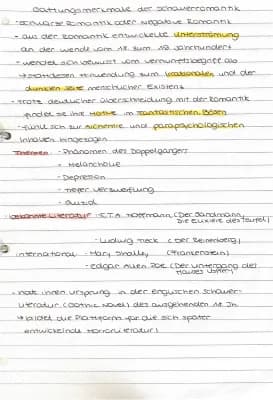 Gattungsmerkmale der Schauerromantik
- schwarze Romantik oder negative Romantik
- aus der Romantik entwickelte Unterströmung
an der wende vom 18. zum 19. Jahrhundert
- wendet sich bewusst vom Vernunftsbegriff ab
→ stattdessen Hinwendung zum Irrationalen und der
dunklen Seite menschlicher Existenz
- trotz deutlicher Überschneidung mit der Romantik
findet sie ihre Motive im Fantastischen Bösen
- fühlt sich zur Alchemie und parapsychologischen
Inhalten hingezogen
Themen: - Phänomen des Doppelgängers
- Melancholie
- Depression
- tiefer Verzweiflung
- Suizid
bekannte Literatur: - E.T.A. Hoffmann (Der Sandmann,
Die Elixiere des Teufels)
- Ludwig Tieck (Der Runenberg)
international: - Mary Shelley (Frankenstein)
- Edgar Allen Poe (Der Untergang des
Hauses Usher)
- hat ihren Ursprung in der englischen Schauer-
literatur (Gothic Novel) des ausgehenden 18. Jh.
→ bildet die Plattform für die sich später
entwickelnde Horrorliteratur!